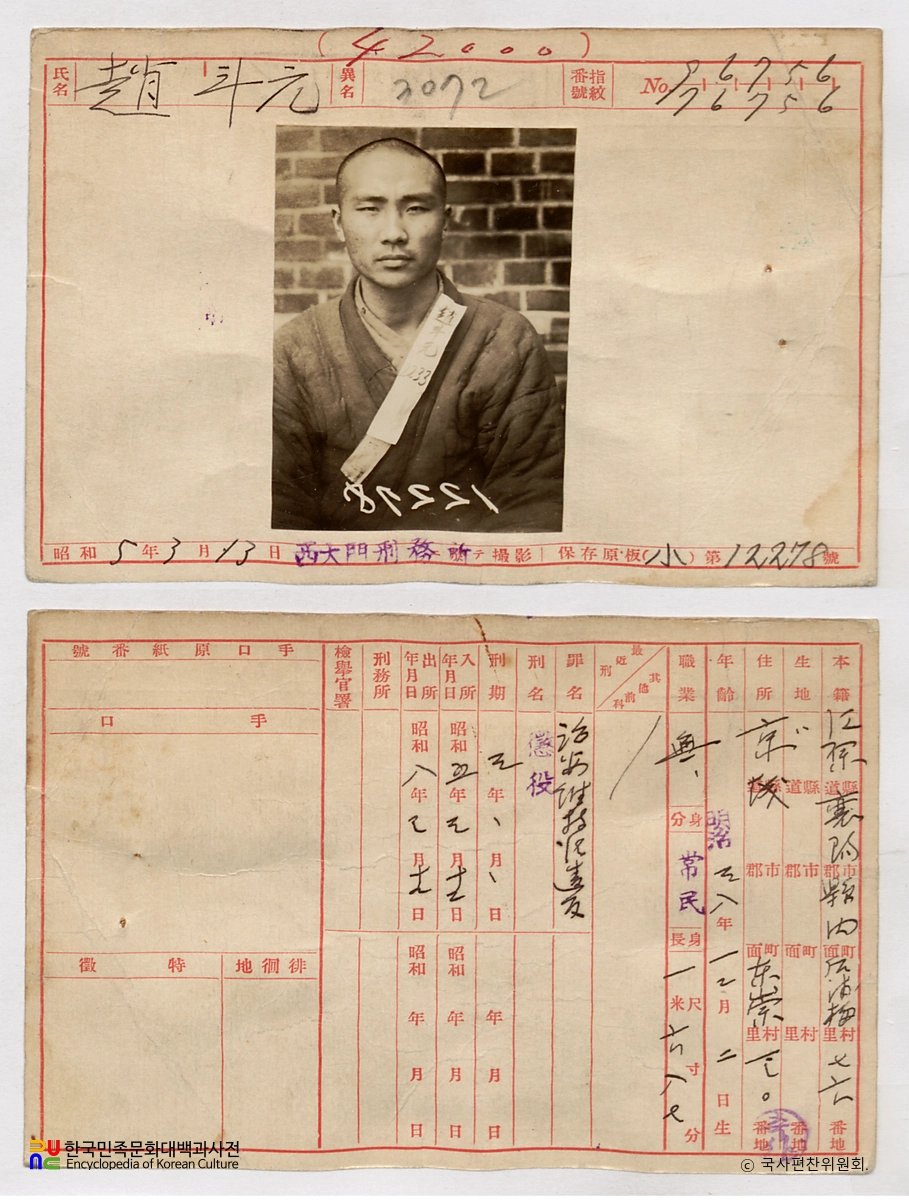 (42000)
氏名 趙斗元 異名 3072 指紋番號 No. 9 6 7 5 6
7 6 7 5 6
趙斗元
233
12278
昭和 5 年 3 月 13 日 西大門刑務所 ニテ撮影 保存原板(小)第12278號
本籍 江原 道縣 襄陽 郡市 縣內 面町 里村 七六 番地
生地 〃 道縣 郡市 面町 里村 番地
住所 京城 道縣 郡市 面町 東崇 里村 三〇 番地
年齡 明治 三八年 一二月 二日生
職業 無
身分 常民
身長 一米尺 六寸八七分
最近刑 其他前科
罪名 治安維持法違反
刑名 懲役
刑期 三年、月、日
年 月 日
入所年月日 昭和五年三月十三日
昭和 年 月 日
出所年月日 昭和八年三月十九日
昭和 年 月 日
刑務所
檢擧官署
手口原紙番號
手口
特徵
徘徊地
한국민족문화대백과사전
Encyclopedia of Korean Culture
© 국사편찬위원회.